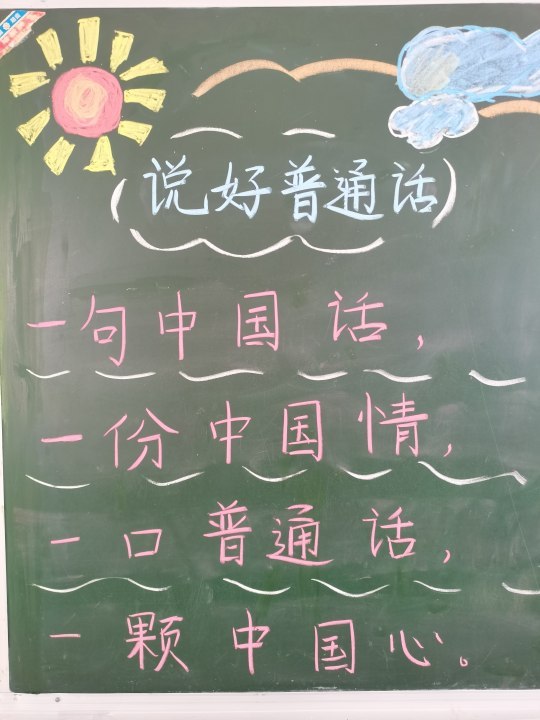 (说好普通话)
一句中国话,
一份中国情,
一口普通话,
一颗中国心。